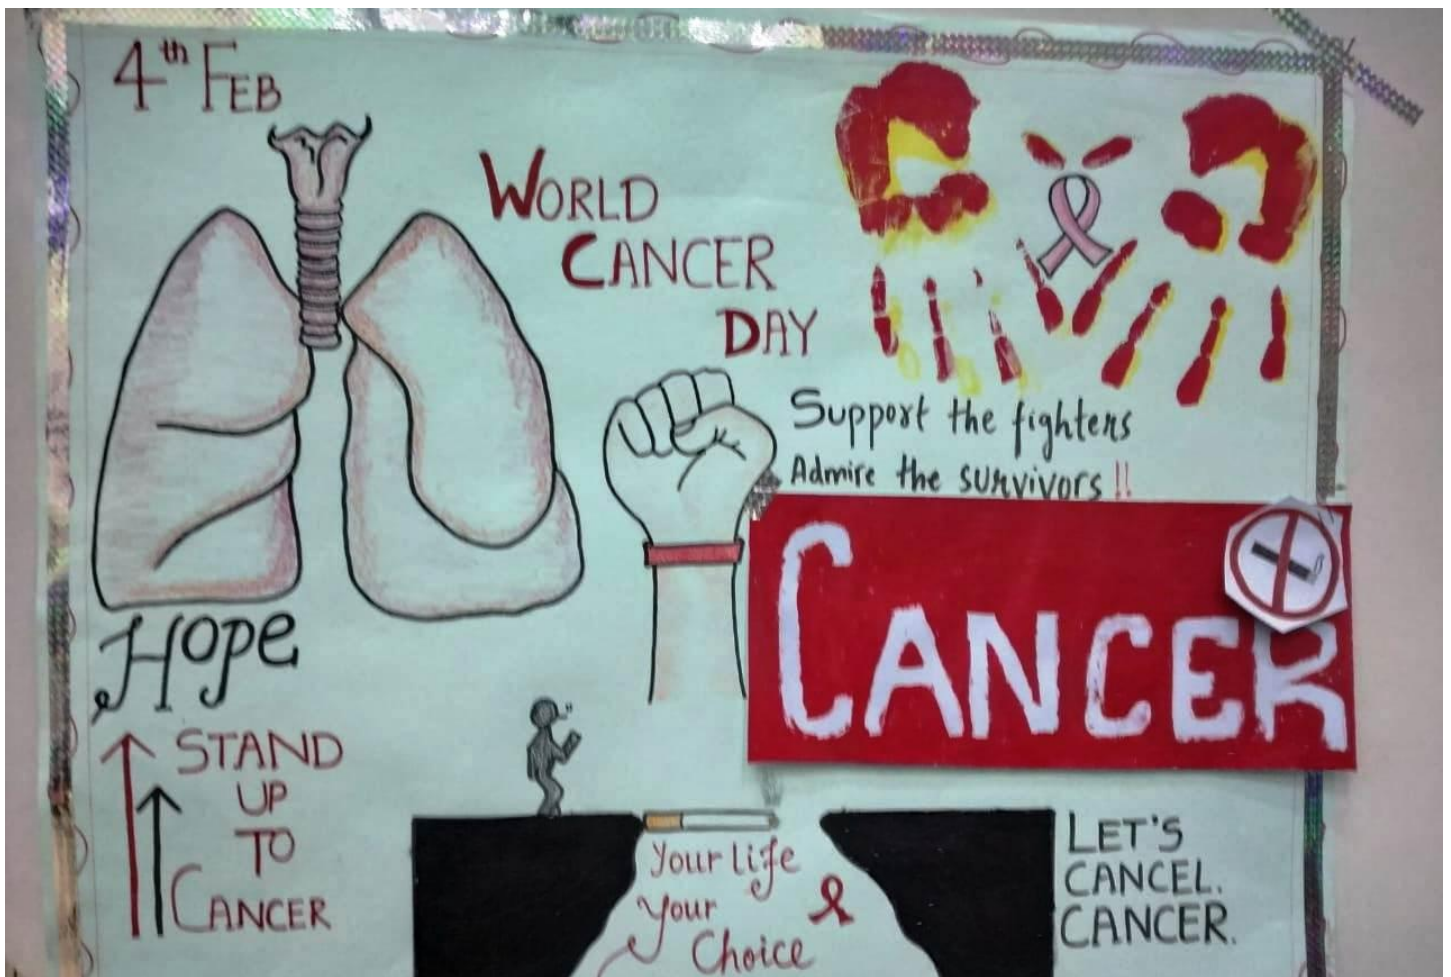 4th FEB
WORLD
CANCER
DAY
Support the fighters
Admire the survivors !!
CANCER
Hope
STAND
UP
TO
CANCER
Your life
Your
Choice
LET'S
CANCEL.
CANCER.